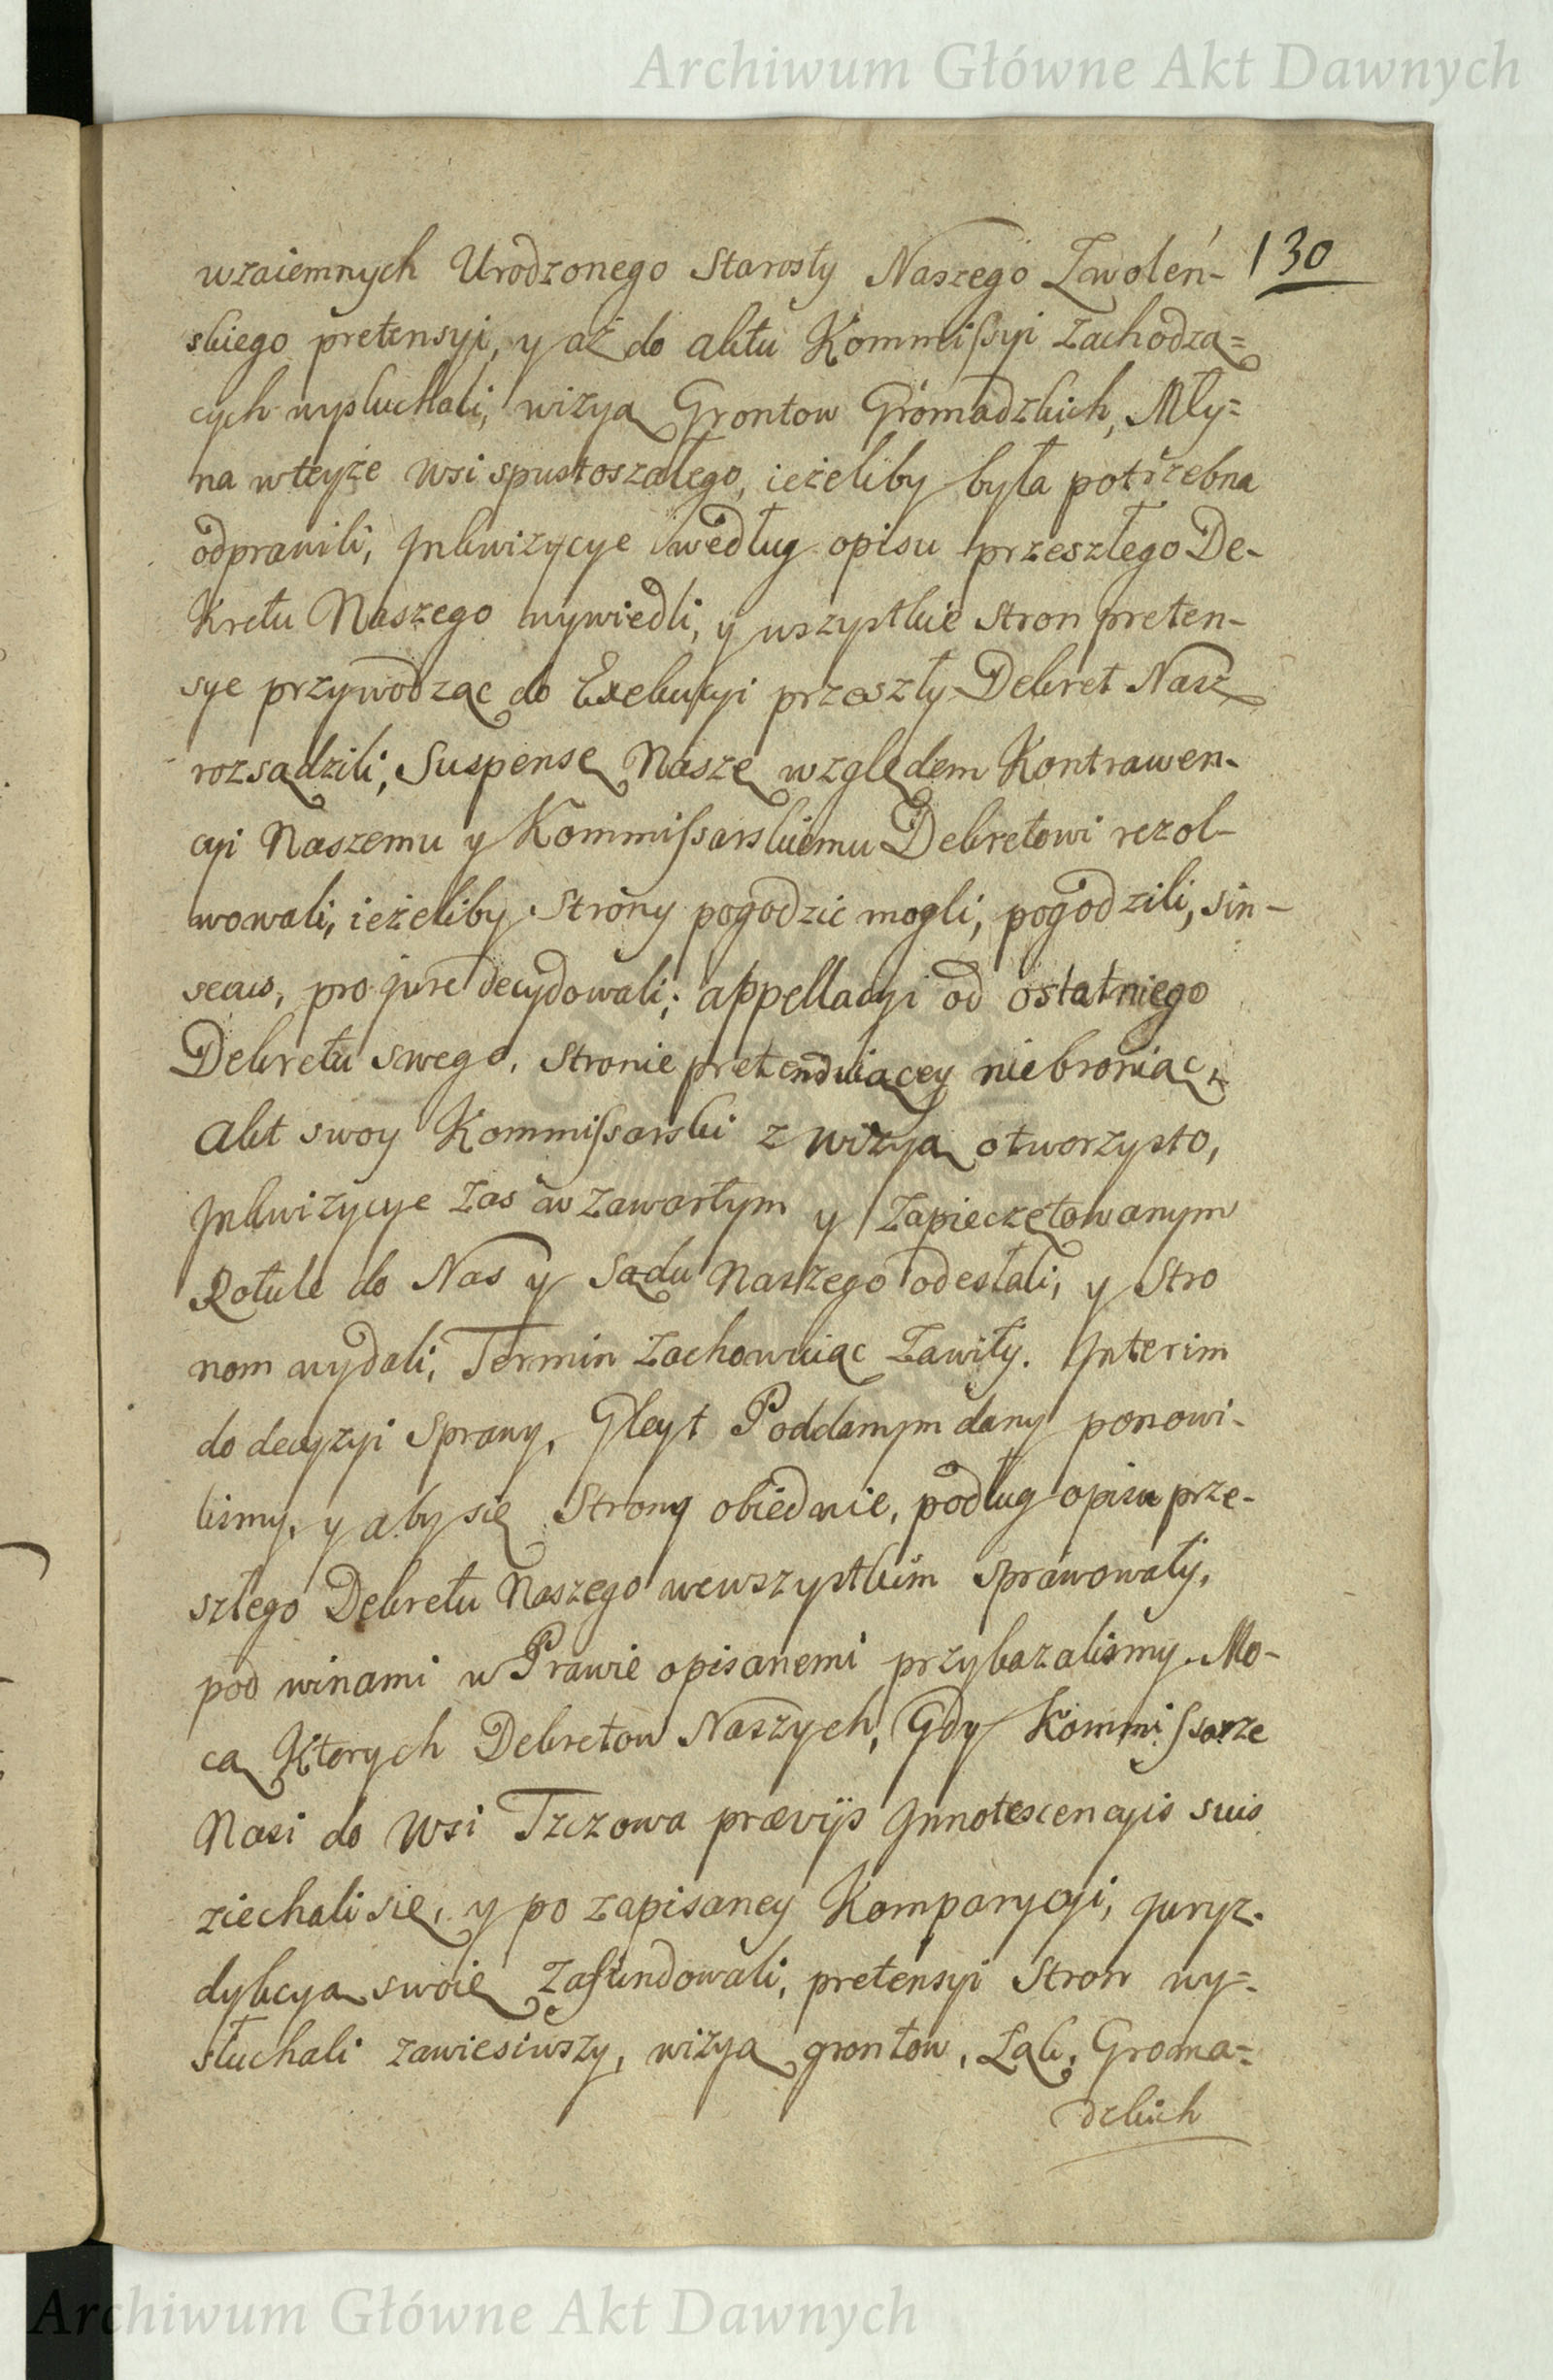 Archiwum Główne Akt Dawnych
130
wzaiemnych Urodzonego Starosty Naszego Zwoleń-
skiego pretensyi, y aż do aktu Kommissyi zachodzą=
cych wysłuchali, wizyą Grontow Gromadzkich, Mły=
na wteyże wsi spustoszałego, ieżeliby była potrzebna
odprawili, Inkwizycye według opisu przeszłego De-
kretu Naszego wywiedli, y wszystkie Stron preten-
sye przywodząc do Exekucyi przeszły Dekret Nasz
rozsądzili, Suspensę Naszę względem Kontrawen-
cyi Naszemu y Kommissarskiemu Dekretowi rezol-
wowali, ieżeliby Strony pogodzic mogli, pogodzili, sin-
secus, pro jure decydowali; appellacyi od ostatniego
Dekretu swego, stronie pretenduiącey niebroniąc,
Akt swoy Kommissarski z wizyą otworzysto,
Inkwizycye zas w zawartym y zapieczętowanym
Rotule do Nas y Sądu Naszego odesłali, y Stro
nom wydali, Termin zachowuiąc Zawity. Interim
do decyzyi Sprawy, Gleyt Poddanym dany ponowi-
lismy, y aby się Strony obiedwie, podług opisu prze-
szłego Dekretu Naszego wewszystkim sprawowały,
pod winami w Prawie opisanemi przykazalismy. Mo-
cą Ktorych Dekretow Naszych, Gdy Kommissarze
Nasi do Wsi Tczowa prævijs Innotescencyis suis
ziechali się, y po zapisaney Komparycyi, juryz-
dykcyą swoię zafundowali, pretensyi Stron wy=
słuchali zawiesiwszy, wizyą grontow, Łąk, Groma=
dzkich
Archiwum Główne Akt Dawnych